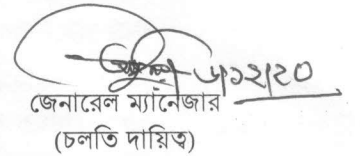 ৬/১২/২০
জেনারেল ম্যানেজার
(চলতি দায়িত্ব)